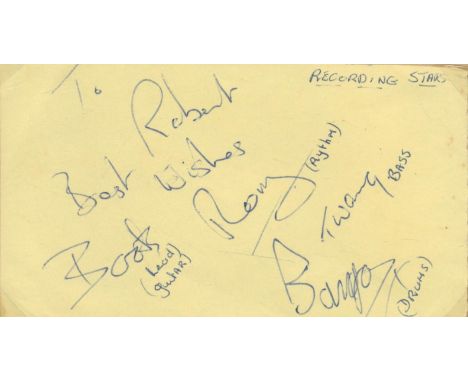 RECORDING STARS
To Robert
Best Wishes
Boots
(Lead
guitar)
Romy
(Rythm)
Twang
BASS
Bongo
(DRUMS)